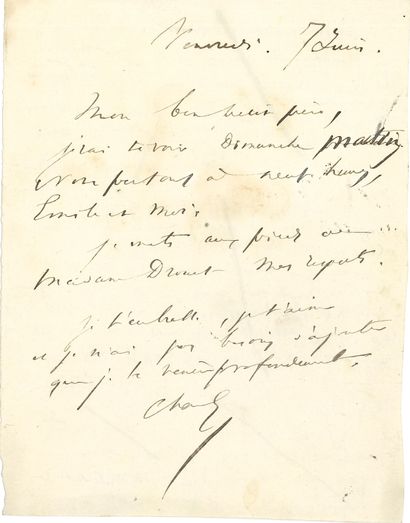 Vendredi. 7 Juin.
Mon bon petit père,
j'irai te voir Dimanche matin
Nous partons à neuf heures,
Emile et moi.
je mets aux pieds de
Madame Drouet mes respects.
je t'embrasse, je t'aime
et je n'ai pas besoin d'ajouter
que je te vénère profondément.
Charles